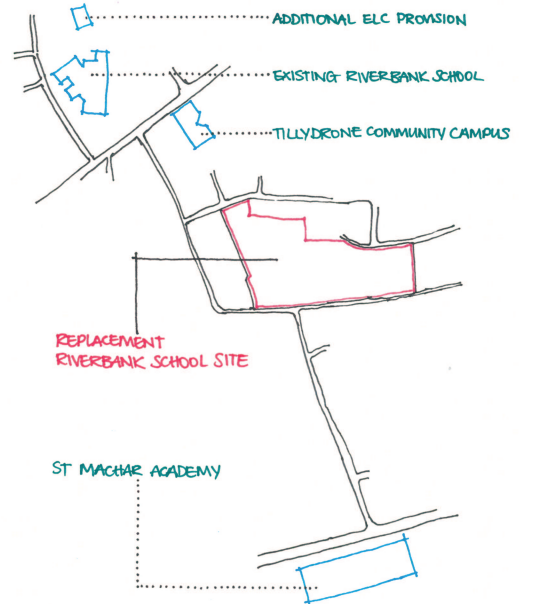 ADDITIONAL ELC PROVISION
EXISTING RIVERBANK SCHOOL
TILLYDRONE COMMUNITY CAMPUS
REPLACEMENT
RIVERBANK SCHOOL SITE
ST MACHAR ACADEMY